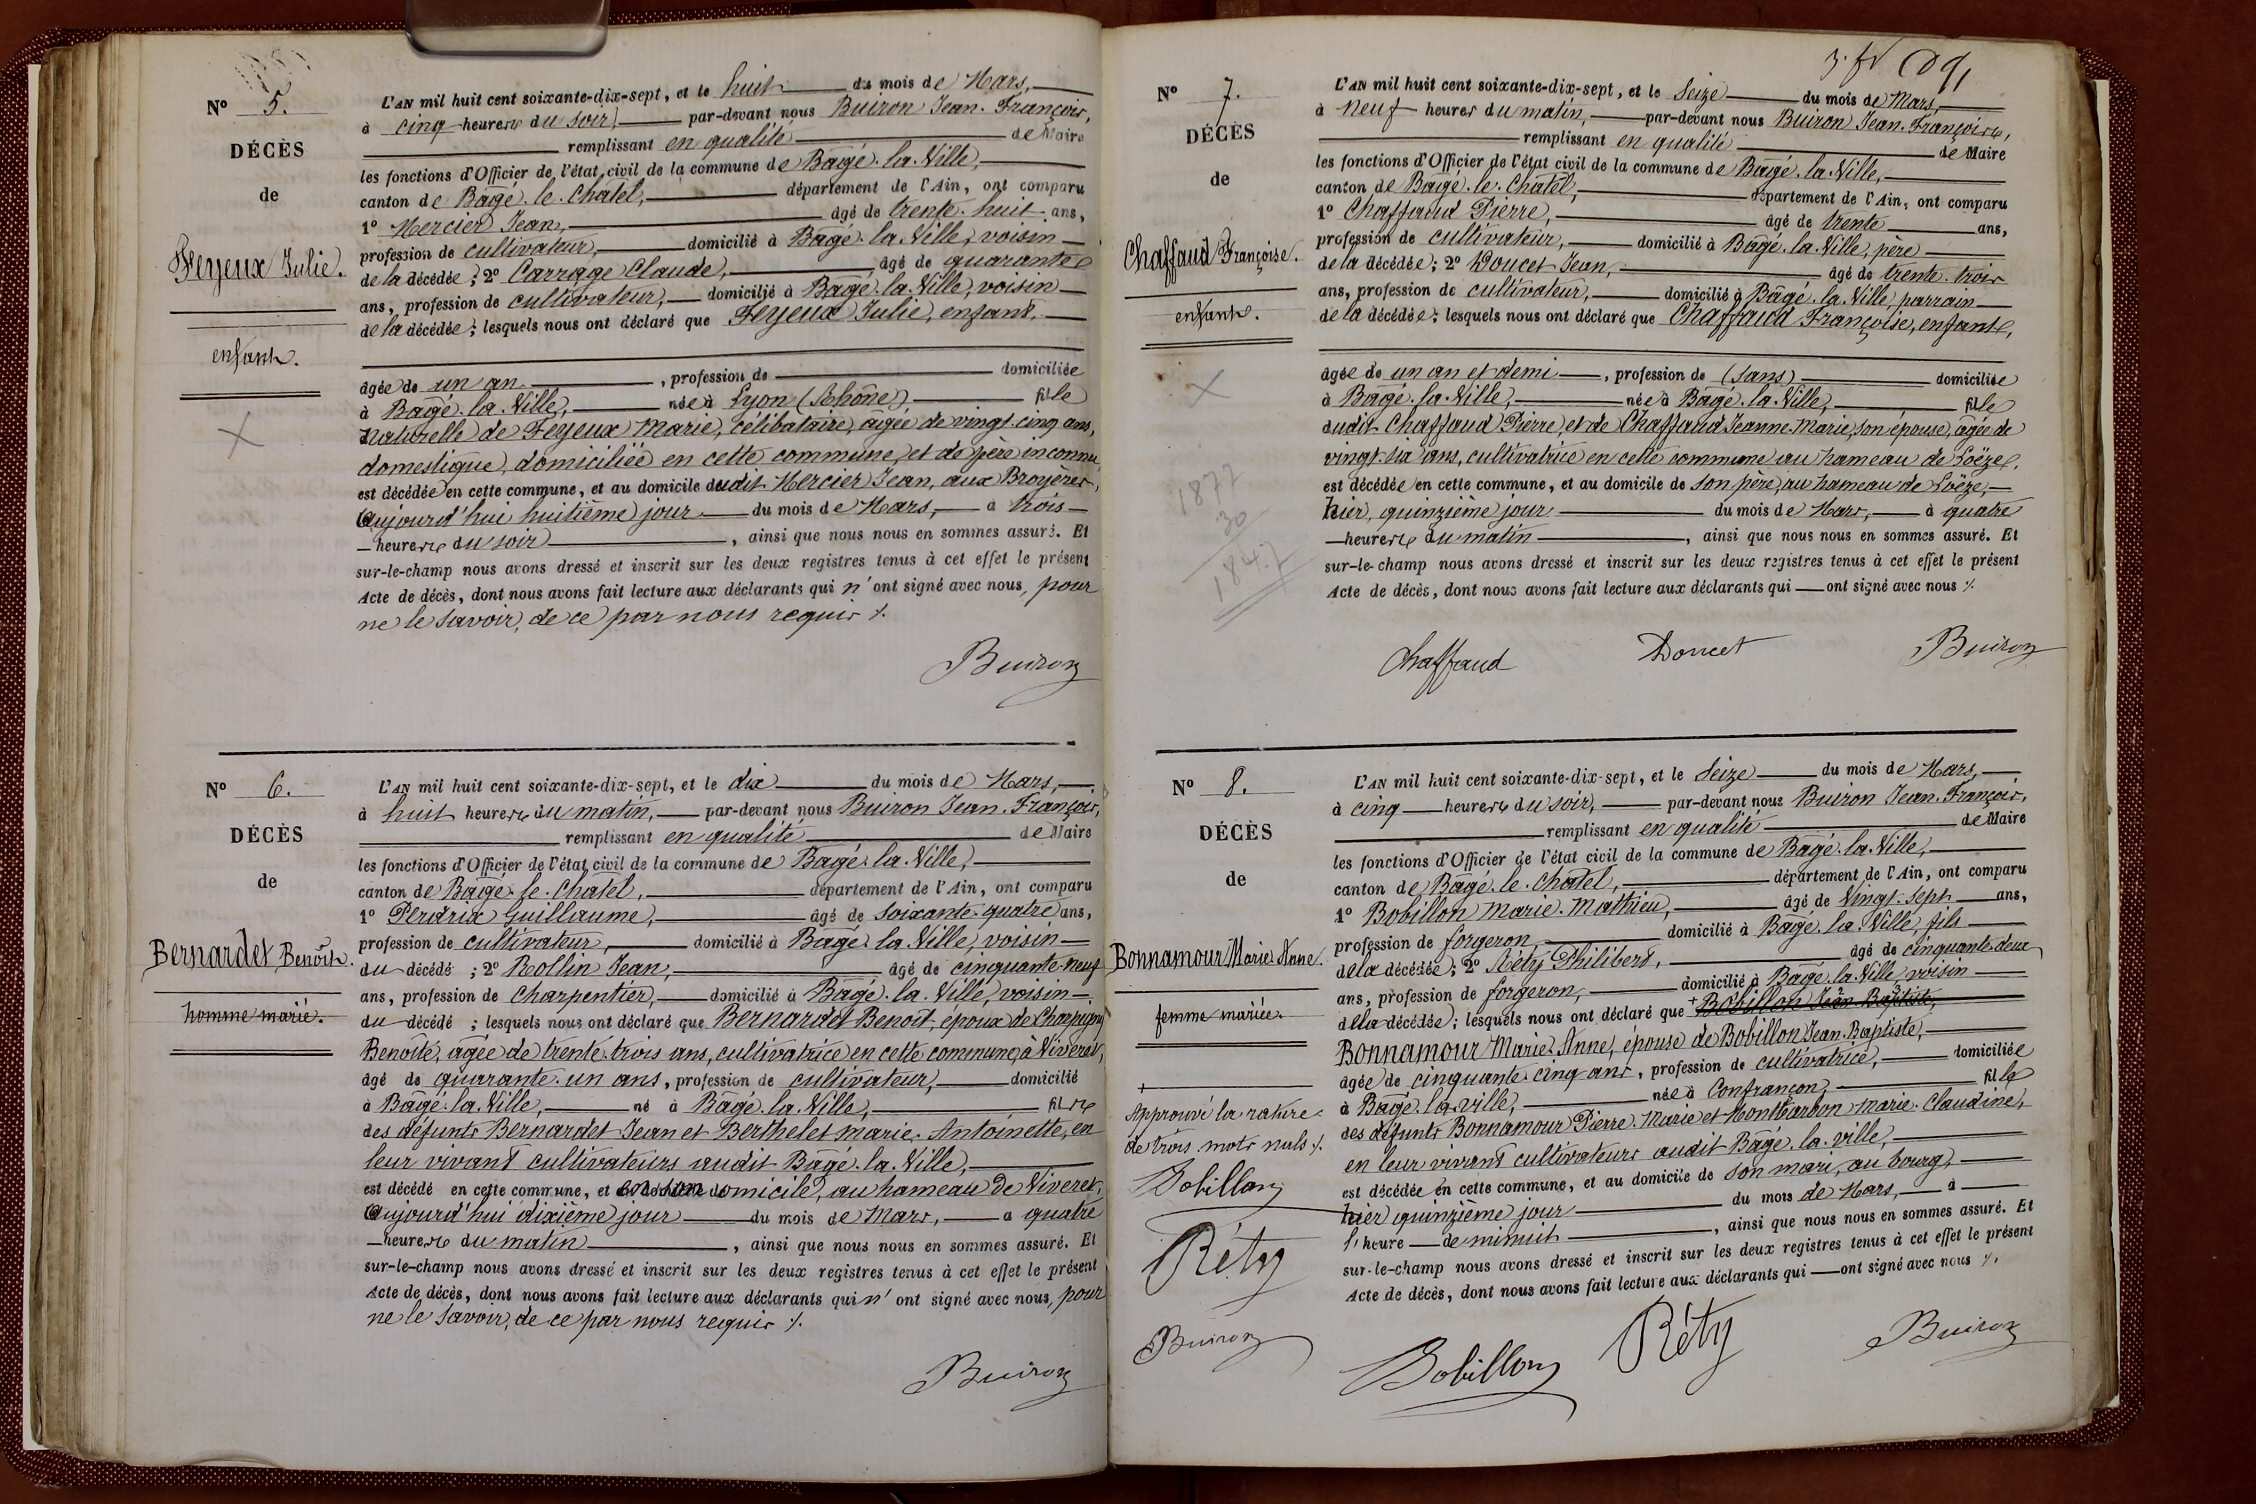 N° 5.
DÉCÈS
de
Feyeux Julie.
enfant.
L'AN mil huit cent soixante-dix-sept, et le huit du mois de Mars,
à cinq heures du soir, par-devant nous Buiron Jean-François,
remplissant en qualité de Maire
les fonctions d'Officier de l'état civil de la commune de Bâgé-la-Ville,
canton de Bâgé-le-Chatel, département de l'Ain, ont comparu
1° Mercier Jean, âgé de trente-huit ans,
profession de cultivateur, domicilié à Bâgé-la-Ville, voisin
de la décédée; 2° Carrage Claude, âgé de quarante
ans, profession de cultivateur, domicilié à Bâgé-la-Ville, voisin
de la décédée; lesquels nous ont déclaré que Feyeux Julie, enfant,
âgée de un an, profession de domiciliée
à Bâgé-la-Ville, née à Lyon (Rhône) fille
naturelle de Feyeux Marie, célibataire, âgée de vingt-cinq ans,
domestique, domiciliée en cette commune, et de père inconnu,
est décédée en cette commune, et au domicile dudit Mercier Jean, aux Broyères,
Aujourd'hui huitième jour du mois de Mars, à trois
heures du soir, ainsi que nous nous en sommes assuré. Et
sur-le-champ nous avons dressé et inscrit sur les deux registres tenus à cet effet le présent
Acte de décès, dont nous avons fait lecture aux déclarants qui n'ont signé avec nous, pour
ne le savoir, de ce par nous requis ./.
Buiron
N° 6.
DÉCÈS
de
Bernardet Benoît.
homme marié.
L'AN mil huit cent soixante-dix-sept, et le dix du mois de Mars,
à huit heures du matin, par-devant nous Buiron Jean-François,
remplissant en qualité de Maire
les fonctions d'Officier de l'état civil de la commune de Bâgé-la-Ville,
canton de Bâgé-le-Chatel, département de l'Ain, ont comparu
1° Perdrix Guillaume, âgé de soixante-quatre ans,
profession de cultivateur, domicilié à Bâgé-la-Ville, voisin
du décédé; 2° Rollin Jean, âgé de cinquante-neuf
ans, profession de charpentier, domicilié à Bâgé-la-Ville, voisin
du décédé; lesquels nous ont déclaré que Bernardet Benoit, époux de Champigny
Benoîte, âgée de trente-trois ans, cultivatrice en cette commune, à Viveret,
âgé de quarante-un ans, profession de cultivateur, domicilié
à Bâgé-la-Ville, né à Bâgé-la-Ville, fils
des défunts Bernardet Jean et Berthelet Marie-Antoinette, en
leur vivant cultivateurs audit Bâgé-la-Ville,
est décédé en cette commune, et en son domicile, au hameau de Viveret,
Aujourd'hui dixième jour du mois de Mars, à quatre
heures du matin, ainsi que nous nous en sommes assuré. Et
sur-le-champ nous avons dressé et inscrit sur les deux registres tenus à cet effet le présent
Acte de décès, dont nous avons fait lecture aux déclarants qui n'ont signé avec nous, pour
ne le savoir, de ce par nous requis ./.
Buiron
N° 7.
DÉCÈS
de
Chaffaud Françoise.
enfant.
1877
30
1847
L'AN mil huit cent soixante-dix-sept, et le Seize du mois de Mars,
à neuf heures du matin, par-devant nous Buiron Jean-François,
remplissant en qualité de Maire
les fonctions d'Officier de l'état civil de la commune de Bâgé-la-Ville,
canton de Bâgé-le-Chatel, département de l'Ain, ont comparu
1° Chaffaud Pierre, âgé de trente ans,
profession de cultivateur, domicilié à Bâgé-la-Ville, père
de la décédée; 2° Doucet Jean, âgé de trente-trois
ans, profession de cultivateur, domicilié à Bâgé-la-Ville, parrain
de la décédée; lesquels nous ont déclaré que Chaffaud Françoise, enfant,
âgée de un an et demi, profession de (sans) domiciliée
à Bâgé-la-Ville, née à Bâgé-la-Ville, fille
dudit Chaffaud Pierre, et de Chaffaud Jeanne-Marie, son épouse, âgée de
vingt-six ans, cultivatrice en cette commune au hameau de Loëze,
est décédée en cette commune, et au domicile de son père, au hameau de Loëze,
hier, quinzième jour du mois de Mars, à quatre
heures du matin, ainsi que nous nous en sommes assuré. Et
sur-le-champ nous avons dressé et inscrit sur les deux registres tenus à cet effet le présent
Acte de décès, dont nous avons fait lecture aux déclarants qui ont signé avec nous ./.
Chaffaud Doucet Buiron
N° 8.
DÉCÈS
de
Bonnamour Marie Anne.
femme mariée.
Approuvé la rature
de trois mots nuls ./.
Bobillon
Réty
Buiron
L'AN mil huit cent soixante-dix-sept, et le Seize du mois de Mars,
à cinq heures du soir, par-devant nous Buiron Jean-François,
remplissant en qualité de Maire
les fonctions d'Officier de l'état civil de la commune de Bâgé-la-Ville,
canton de Bâgé-le-Chatel, département de l'Ain, ont comparu
1° Bobillon Marie-Mathieu, âgé de vingt-sept ans,
profession de forgeron, domicilié à Bâgé-la-Ville, fils
de la décédée; 2° Réty Philibert, âgé de cinquante-deux
ans, profession de forgeron, domicilié à Bâgé-la-Ville, voisin
de la décédée; lesquels nous ont déclaré que + Bobillon Jean Baptiste,
Bonnamour Marie-Anne, épouse de Bobillon Jean-Baptiste,
âgée de cinquante-cinq ans, profession de cultivatrice, domiciliée
à Bâgé-la-ville, née à Confrançon, fille
des défunts Bonnamour Pierre-Marie et Montbarbon Marie-Claudine,
en leur vivant cultivateurs audit Bâgé-la-ville,
est décédée en cette commune, et au domicile de son mari, au bourg,
hier quinzième jour du mois de Mars, à
l'heure de minuit, ainsi que nous nous en sommes assuré. Et
sur-le-champ nous avons dressé et inscrit sur les deux registres tenus à cet effet le présent
Acte de décès, dont nous avons fait lecture aux déclarants qui ont signé avec nous ./.
Bobillon Réty Buiron